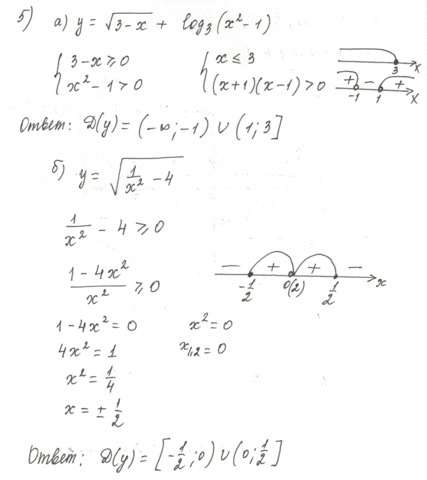 5) а) y = √(3-x) + log₃(x²-1)
{ 3-x ⩾ 0 { x ≤ 3 3 x
{ x²-1 > 0 { (x+1)(x-1) > 0 + - + -1 1 x
Ответ: D(y) = (-∞; -1) ∪ (1; 3]
б) y = √(1/x² - 4)
1/x² - 4 ⩾ 0
(1-4x²)/x² ⩾ 0 - + + - -1/2 0(2) 1/2 x
1-4x² = 0 x² = 0
4x² = 1 x₁,₂ = 0
x² = 1/4
x = ± 1/2
Ответ: D(y) = [-1/2; 0) ∪ (0; 1/2]